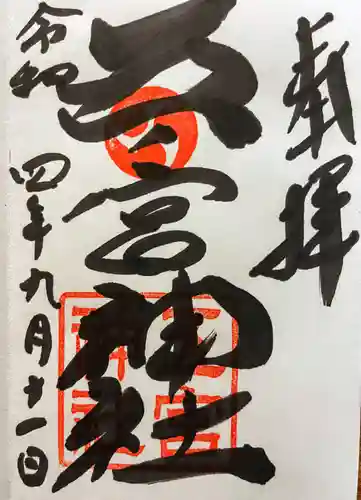 奉拝
五宮神社
令和四年九月十一日